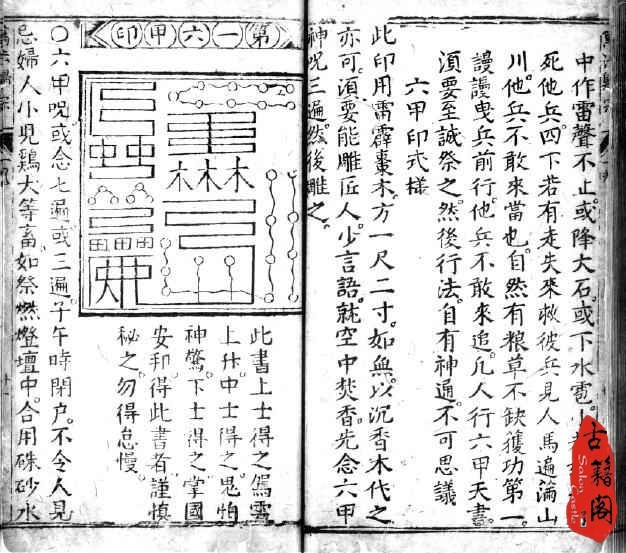 中作雷聲不止或降大石或下水雹
死他兵四下若有走失來救彼兵見人馬遍滿山
川他兵不敢來當也自然有粮草不缺獲功第一
謾謾曳兵前行他兵不敢來追凡人行六甲天書
須要至誠祭之然後行法自有神通不可思議
六甲印式樣
此印用雷霹棗木方一尺二寸如無以沉香木代之
亦可須要能雕匠人少言語就空中焚香先念六甲
神咒三遍然後雕之
第一六甲印
此書上士得之駕雲
上升中士得之鬼怕
神驚下士得之掌國
安邦得此書者謹慎
秘之勿得怠慢
○六甲呪或念七遍或三遍子午時閉户不令人見
忌婦人小兒鷄犬等畜如祭燃燈壇中合用硃砂水
古籍阁